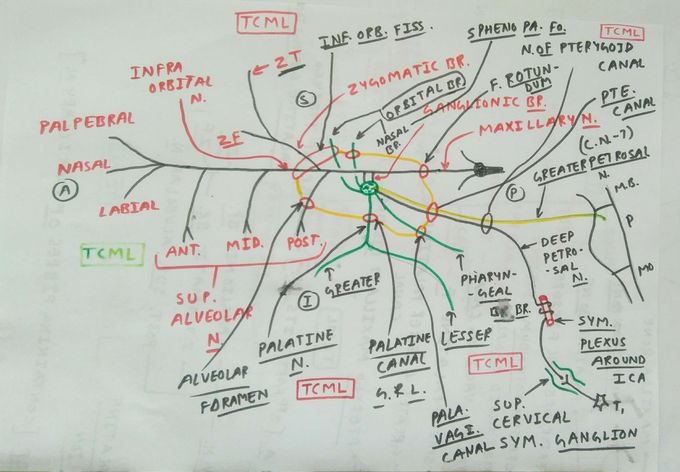 TCML
INF. ORB. FISS.
SPHENO PA. FO.
TCML
N. OF PTERYGOID
CANAL
← ZT
INFRA
ORBITAL
N.
ZYGOMATIC BR.
ORBITAL BR.
F. ROTUN-
DUM
S
GANGLIONIC BR.
NASAL
BR.
PTE.
CANAL
PALPEBRAL
ZF
MAXILLARY N.
(C.N-7)
NASAL
A
GREATER PETROSAL
N.
LABIAL
P
M.B.
P
MO
TCML
ANT.
MID.
POST.
DEEP
PETRO-
SAL
N.
SUP.
ALVEOLAR
N.
I
GREATER
PHARYN-
GEAL
BR.
LESSER
SYM.
PLEXUS
AROUND
ICA
PALATINE
N.
PALATINE
CANAL
G.R.L.
TCML
TCML
ALVEOLAR
FORAMEN
PALA.
VAGI.
CANAL
SUP.
CERVICAL
SYM. GANGLION
T1